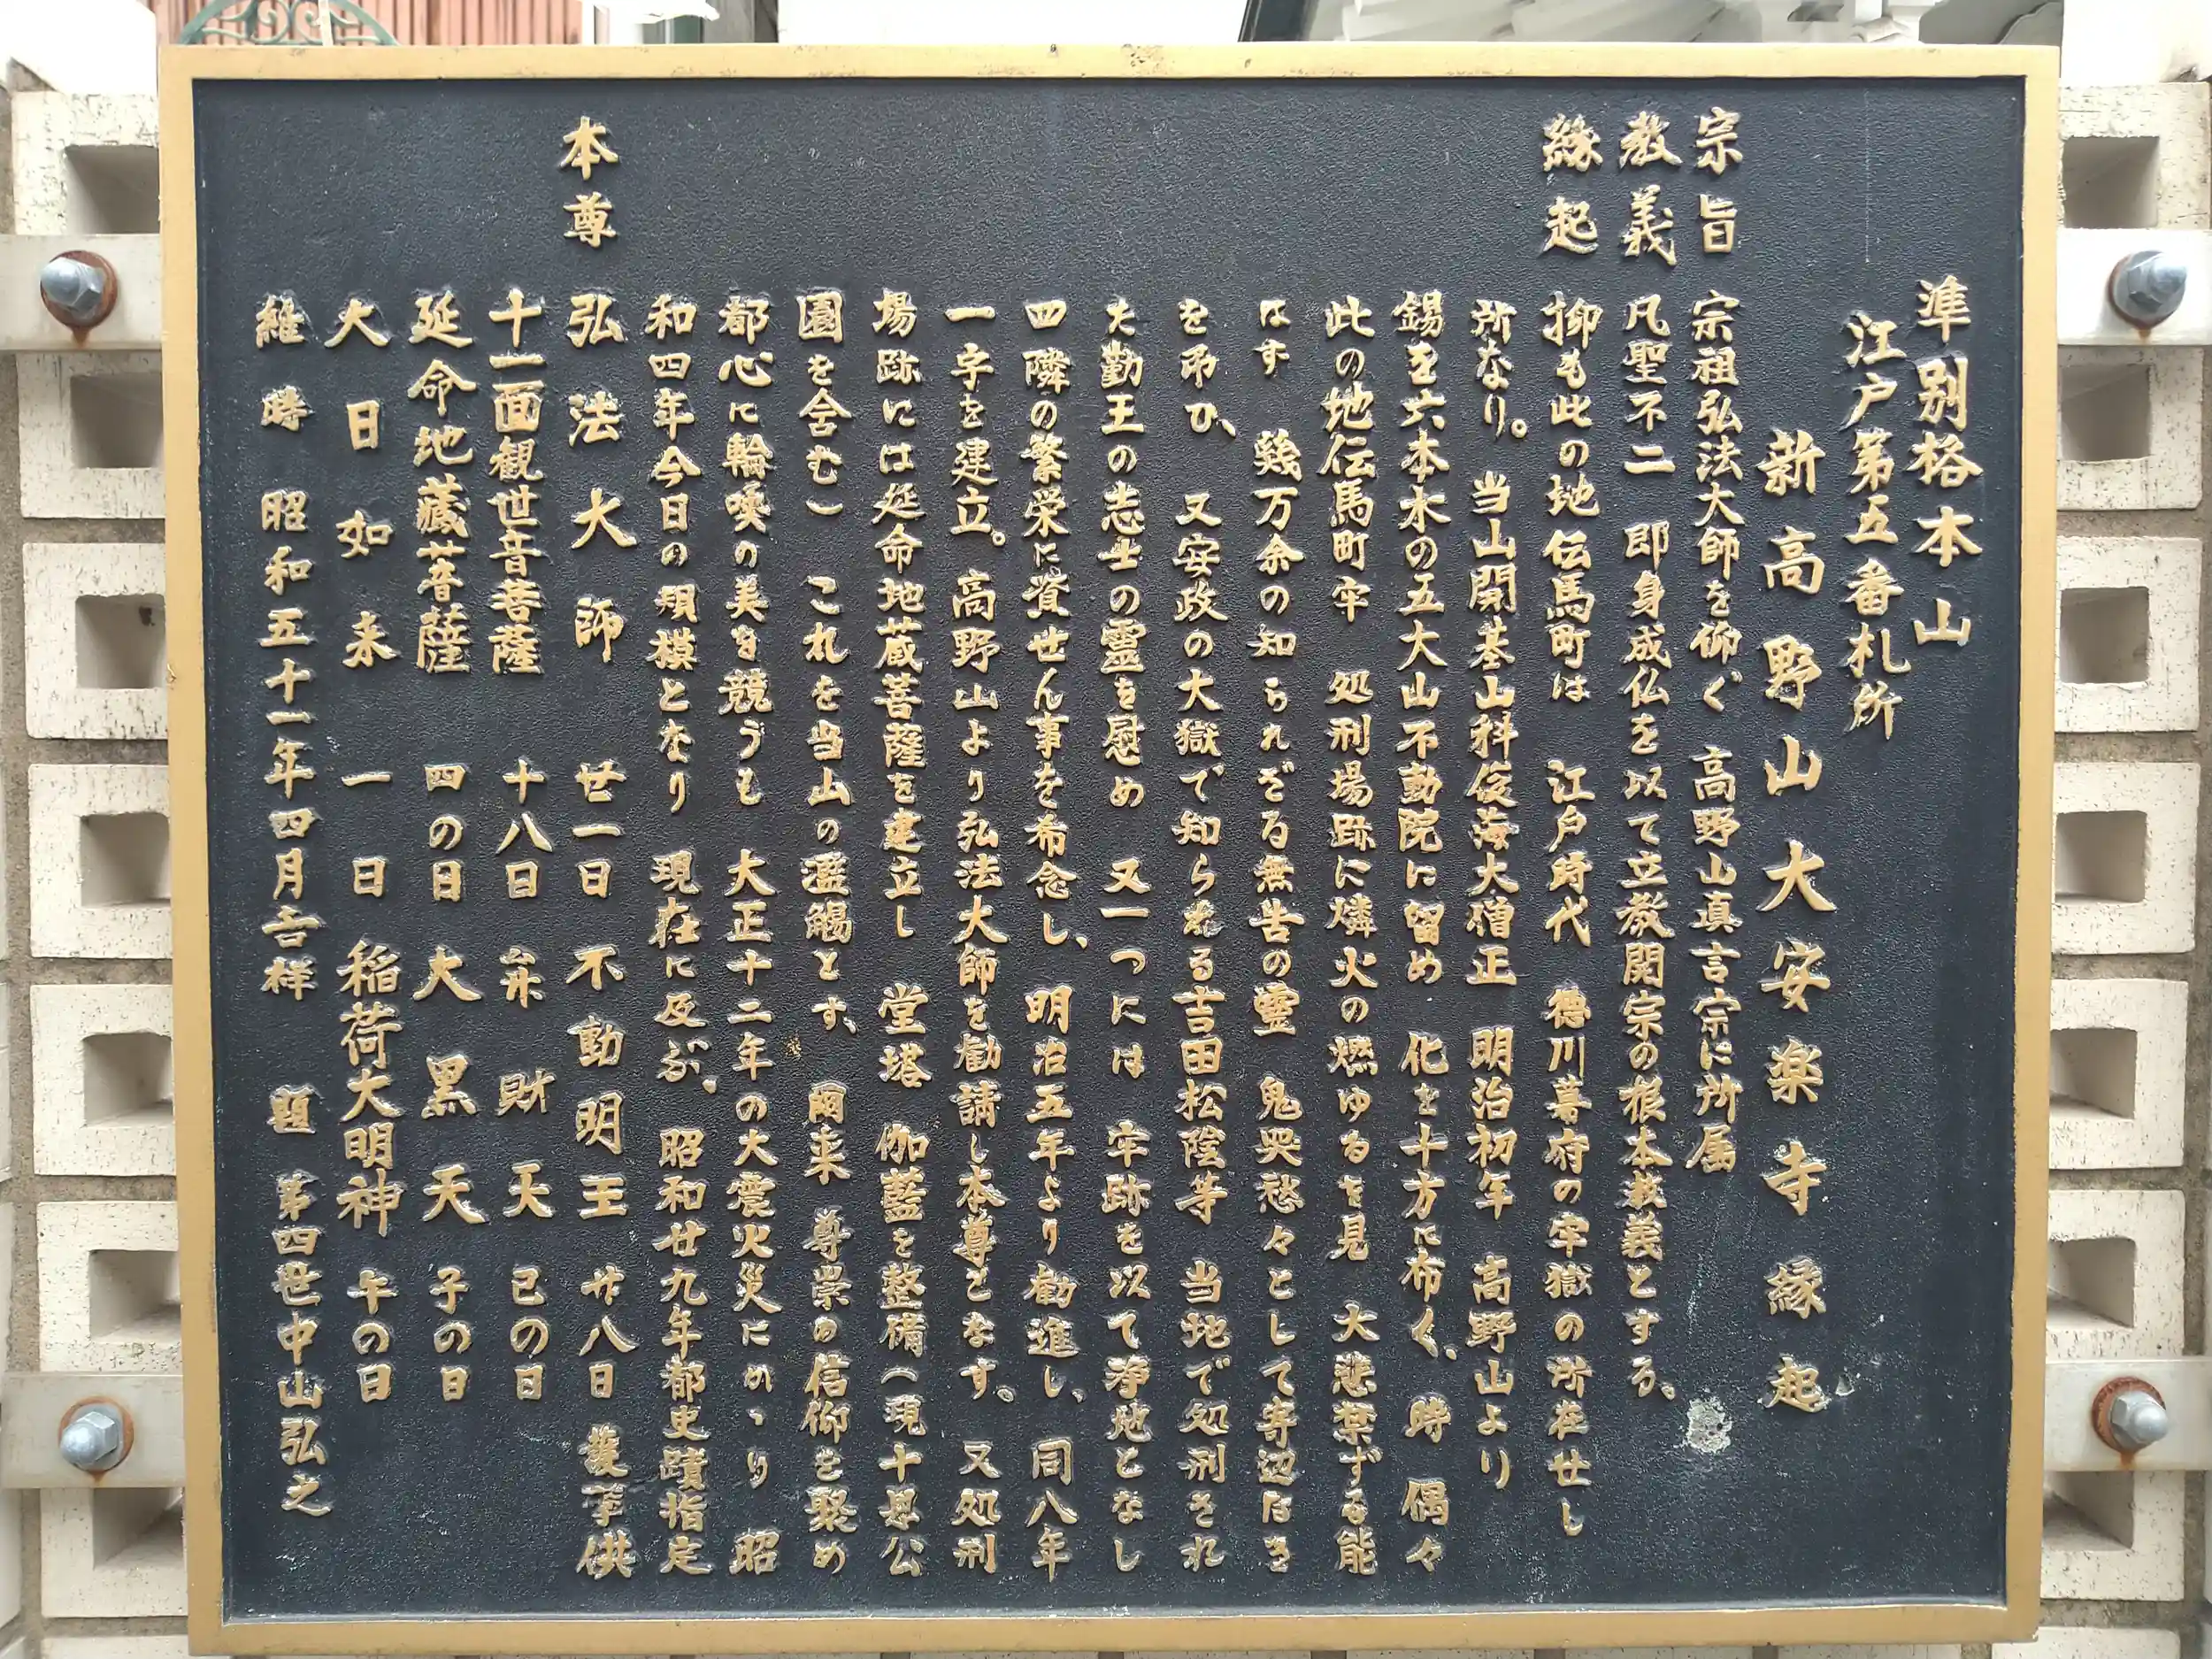 準別格本山
江戸第五番札所
新高野山大安楽寺縁起
宗旨 宗祖弘法大師を仰ぐ 高野山真言宗に所属
教義 凡聖不二 即身成仏を以て立教開宗の根本教義とする。
縁起 抑も此の地伝馬町は 江戸時代 徳川幕府の牢獄の所在せし
所なり。 当山開基山科俊海大僧正 明治初年 高野山より
錫を六本木の五大山不動院に留め 化を十方に布く、 時 偶々
此の地伝馬町牢 処刑場跡に燐火の燃ゆるを見 大悲禁ずる能
はず 幾万余の知られざる無告の霊 鬼哭愁々として寄辺なき
を弔ひ、 又安政の大獄で知られる吉田松陰等 当地で処刑され
た勤王の志士の霊を慰め 又一つには 牢跡を以て浄地となし
四隣の繁栄に資せん事を希念し、 明治五年より勧進し、 同八年
一宇を建立。高野山より弘法大師を勧請し本尊となす。 又処刑
場跡には延命地蔵菩薩を建立し 堂塔 伽藍を整備(現十思公
園を含む) これを当山の濫觴とす、 爾来 尊崇の信仰を聚め
都心に輪喚の美を競うも 大正十二年の大震火災にかゝり 昭
和四年今日の規模となり 現在に及ぶ、 昭和廿九年都史蹟指定
本尊 弘法大師 廿一日 不動明王 廿八日 護摩供
十一面観世音菩薩 十八日 弁財天 己の日
延命地蔵菩薩 四の日 大黒天 子の日
大日如来 一日 稲荷大明神 午の日
維時 昭和五十一年四月吉祥 題 第四世中山弘之